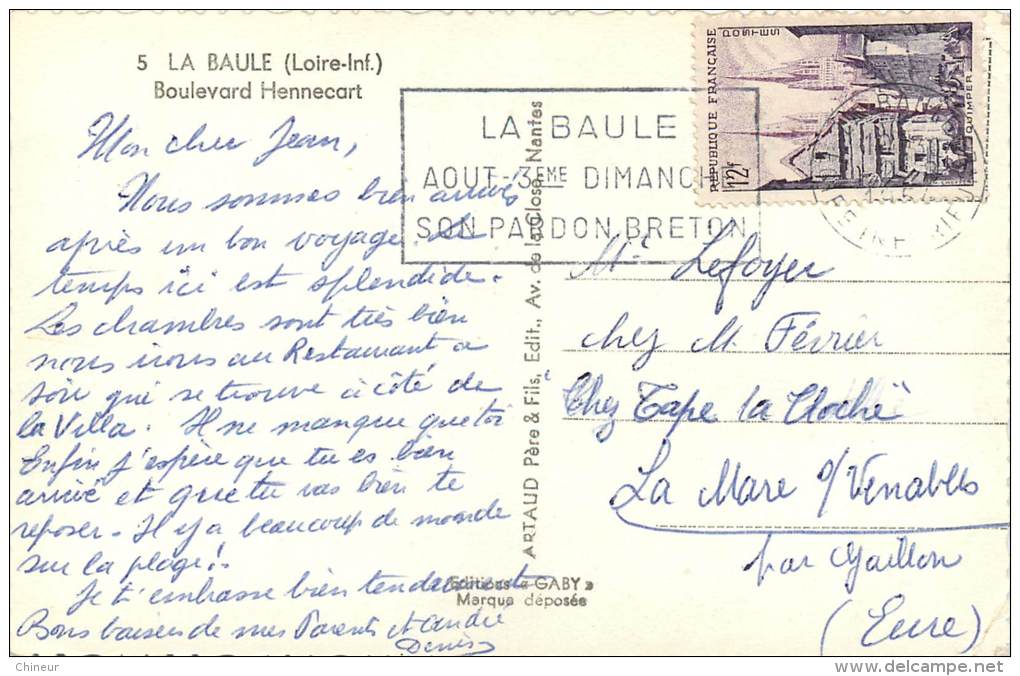 5 LA BAULE (Loire-Inf.)
Boulevard Hennecart
Mon cher Jean,
Nous sommes bien arrivés
après un bon voyage. Le
temps ici est splendide.
Les chambres sont très bien
nous irons au Restaurant ce
soir qui se trouve à côté de
la Villa. Il ne manque que toi
Enfin j'espère que tu es bien
arrivé et que tu vas bien te
reposer. Il y a beaucoup de monde
sur la plage!
Je t'embrasse bien tendrement
Bons baisers de mes Parents et André
Denis
Editions « GABY »
Marque déposée
ARTAUD Père & Fils, Edit., Av. de la Close, Nantes
LA BAULE
AOUT-3EME DIMANCHE
SON PARDON BRETON
REPUBLIQUE FRANÇAISE
POSTES
12f
QUIMPER
Mr Lefoyer
chez M. Février
Chez Tape la Cloche
La Mare s/Venables
par Gaillon
(Eure)
Chineur
delcampe.net